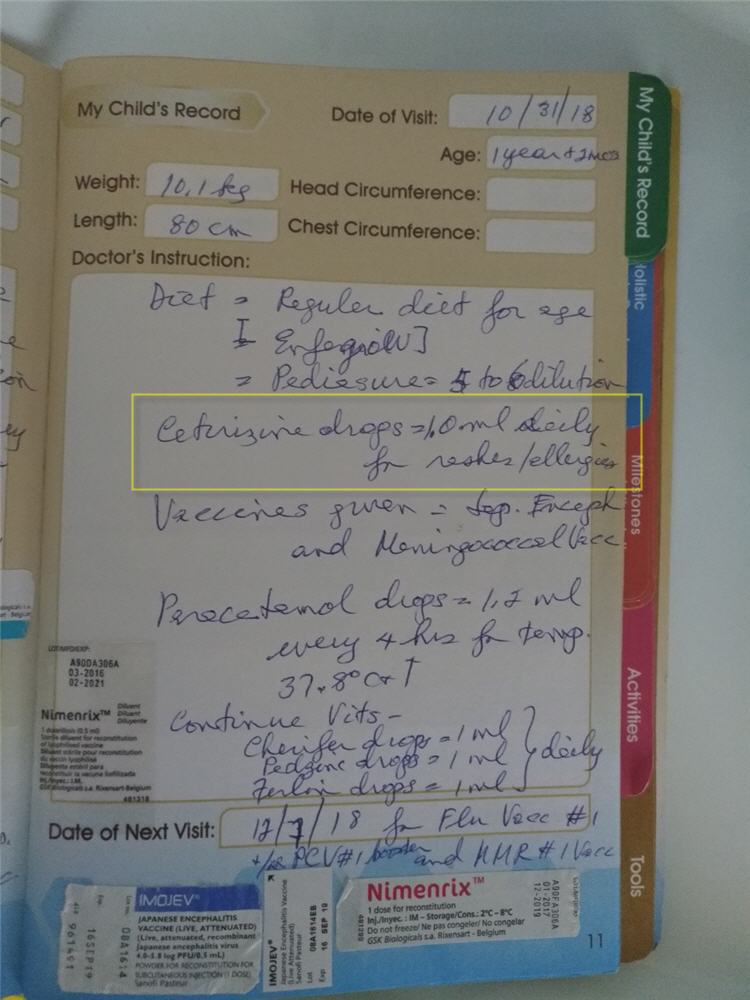 My Child's Record
Date of Visit: 10/31/18
Age: 1 year + 2 mos
Weight: 10.1 kg
Head Circumference:
Length: 80 cm
Chest Circumference:
Doctor's Instruction:
Diet = Regular diet for age
= Pediasure = 5 to 6 dilution
Cetirizine drops = 1.0 ml daily
for rashes/allergies
Vaccines given = Jap. Enceph
and Meningococcal Vacc
Paracetamol drops = 1.2 ml
every 4 hrs for temp.
37.8°C or ↑
Continue Vits -
Cherifer drops = 1 ml
Pedzinc drops = 1 ml } daily
Ferlin drops = 1 ml
Date of Next Visit: 12/ /18 for Flu Vacc #1
+/or PCV #1 booster and MMR #1 Vacc
My Child's Record
Holistic
Milestones
Activities
Tools
A90DA306A
03-2016
02-2021
Nimenrix™
Diluent
Diluant
Diluyente
GSK Biologicals s.a. Rixensart-Belgium
491318
IMOJEV®
JAPANESE ENCEPHALITIS
VACCINE (LIVE, ATTENUATED)
(Live, attenuated, recombinant
Japanese encephalitis virus
4.0-5.8 log PFU/0.5 mL)
POWDER FOR RECONSTITUTION FOR
SUBCUTANEOUS INJECTION (1 DOSE)
Sanofi Pasteur
16SEP19
IMOJEV®
Japanese Encephalitis Vaccine
(Live Attenuated)
Sanofi Pasteur
Lot 08A1614EB
Exp 16 SEP 19
Nimenrix™
1 dose for reconstitution
Inj./Inyec.: IM – Storage/Cons.: 2°C – 8°C
Do not freeze/ Ne pas congeler/ No congelar
GSK Biologicals s.a. Rixensart - Belgium
A90FA306A
01-2017
12-2019
11